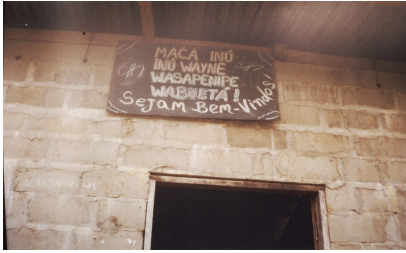 MACA INÚ
INÚ WAYNE
WASAPENIPE
WABUETÁ!
Sejam Bem-Vindos!